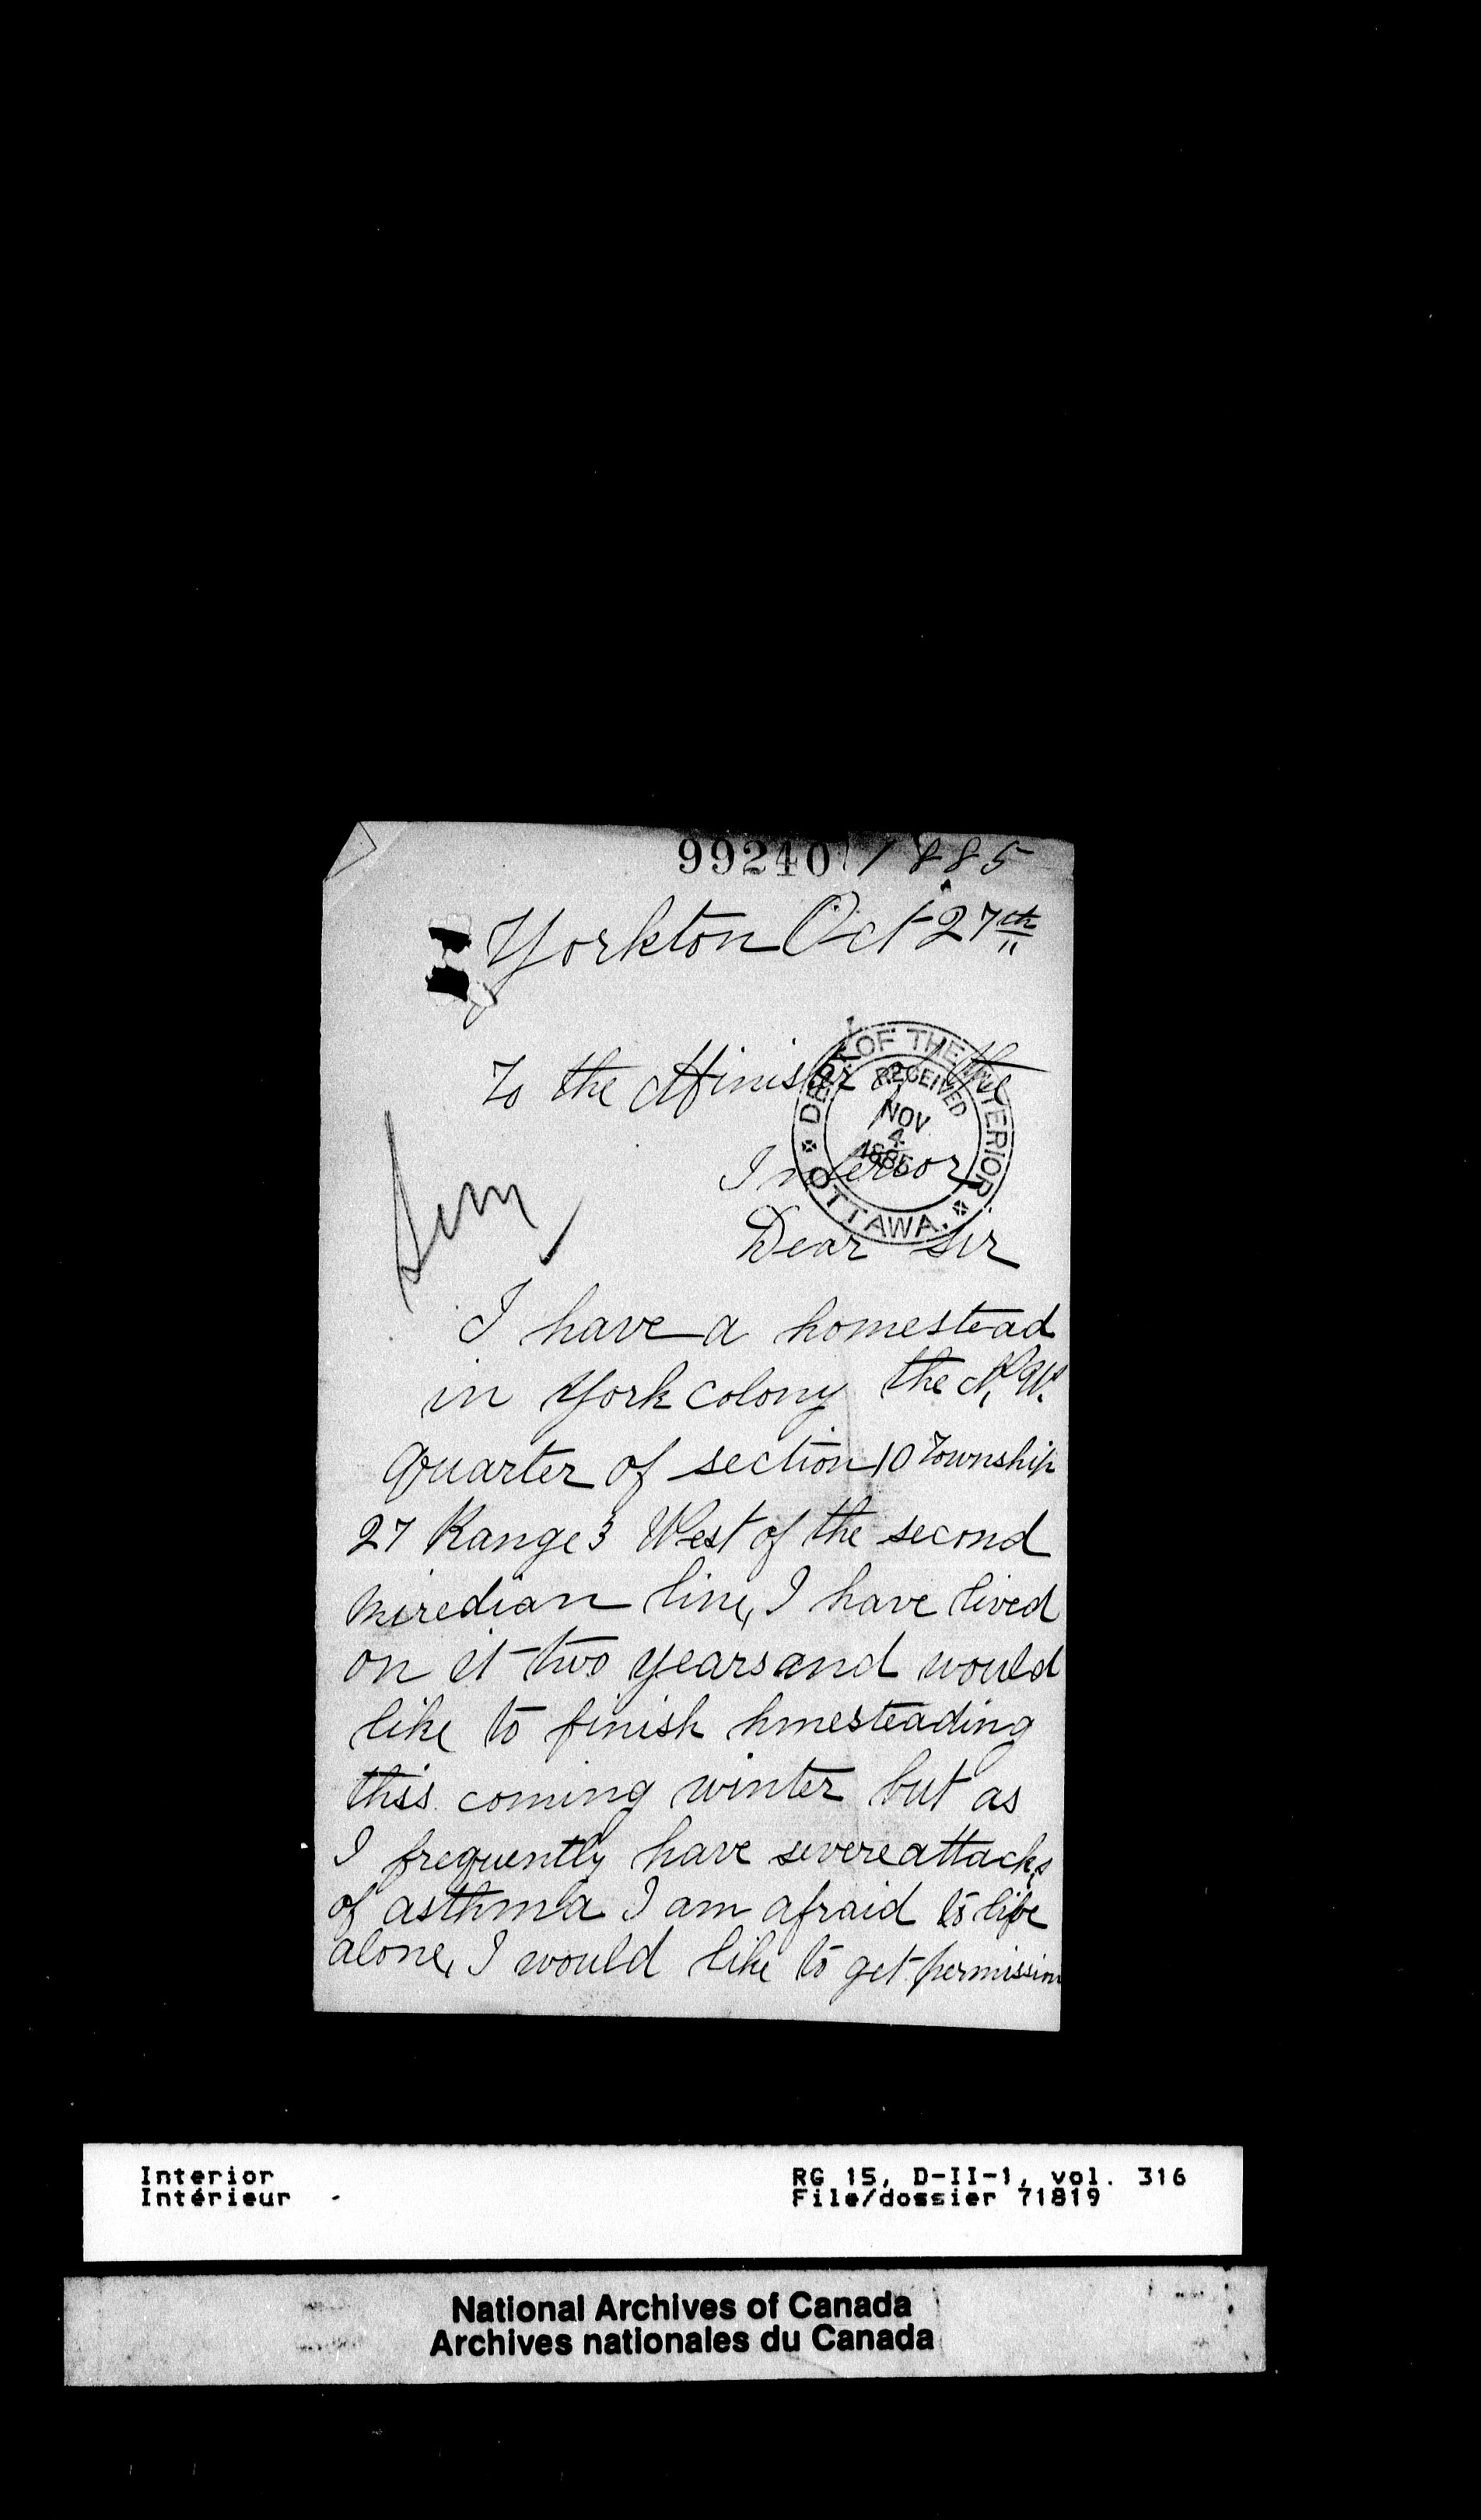 99240 1885
Yorkton Oct 27th
To the Minister of the
Interior
DEPT. OF THE INTERIOR.
RECEIVED
NOV
4
1885
OTTAWA.
Dear Sir
I have a homestead
in York colony the N. W.
quarter of section 10 Township
27 Range 3 West of the second
Miredian line, I have lived
on it two years and would
like to finish hmesteading
this coming winter but as
I frequently have severe attacks
of asthma I am afraid to live
alone, I would like to get permission
Interior
Intérieur -
RG 15, D-II-1, vol. 316
File/dossier 71819
National Archives of Canada
Archives nationales du Canada